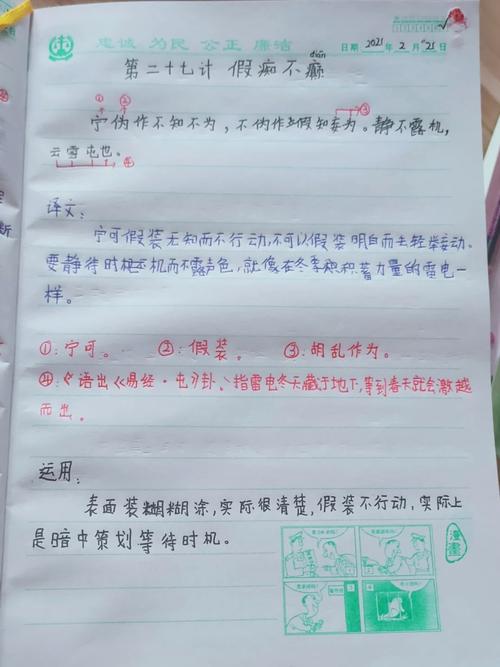 忠诚 为民 公正 廉洁
日期 2021 年 2 月 21 日
diān
第二十七计 假痴不癫
① ②
③
宁伪作不知不为，不伪作假知妄为。静不露机，
云雷屯也。
④
译文：
宁可假装无知而不行动，不可以假装明白而去轻举妄动。
要静待时机而不露声色，就像在冬季积蓄力量的雷电一
样。
①：宁可。 ②：假装。 ③：胡乱作为。
④：《语出《易经·屯》卦、指雷电冬天藏于地下，等到春天就会激越
而出。
运用：
表面装糊糊涂，实际很清楚，假装不行动，实际上
是暗中策划等待时机。
漫画